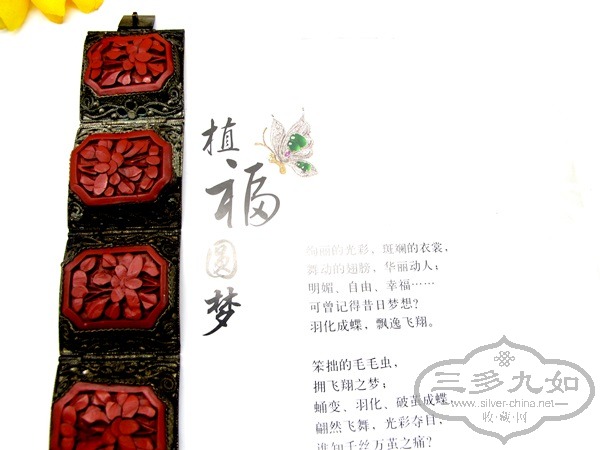 植福圆梦
绚丽的光彩，斑斓的衣裳，
舞动的翅膀，华丽动人；
明媚、自由、幸福……
可曾记得昔日梦想？
羽化成蝶，飘逸飞翔。
笨拙的毛毛虫，
拥飞翔之梦；
蛹变、羽化、破茧成蝶
翩然飞舞，光彩夺目，
谁知千丝万茧之痛？
三多九如
www.silver-china.net
收·藏·网